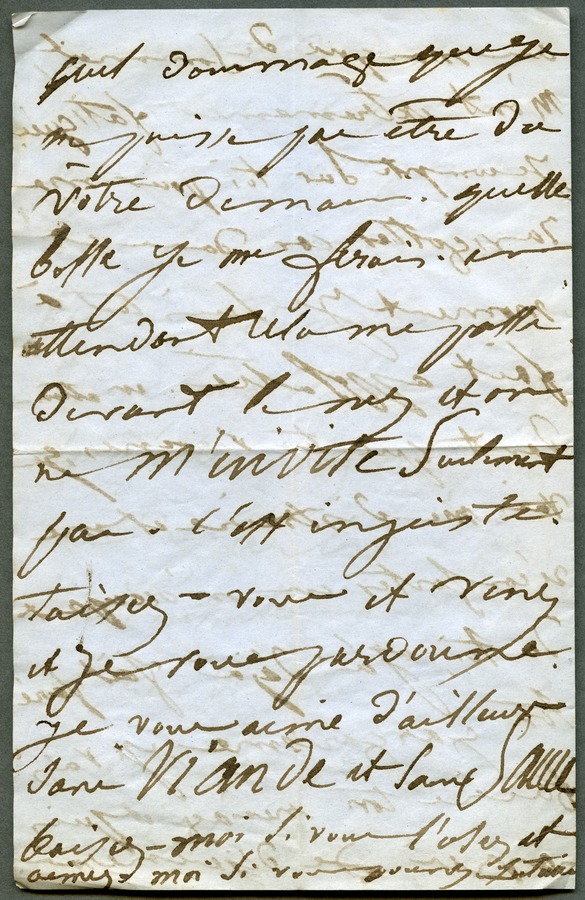 quel dommage que je
ne puisse pas être du
vôtre demain. quelle
bosse je me ferais. en
attendant cela me passe
devant le nez et on
ne m'invite seulement
pas. c'est injuste.
taisez-vous et venez
et je vous pardonne.
je vous aime d'ailleurs
sans viande et sans sauce
baisez-moi si vous l'osez et
aimez-moi si vous pouvez